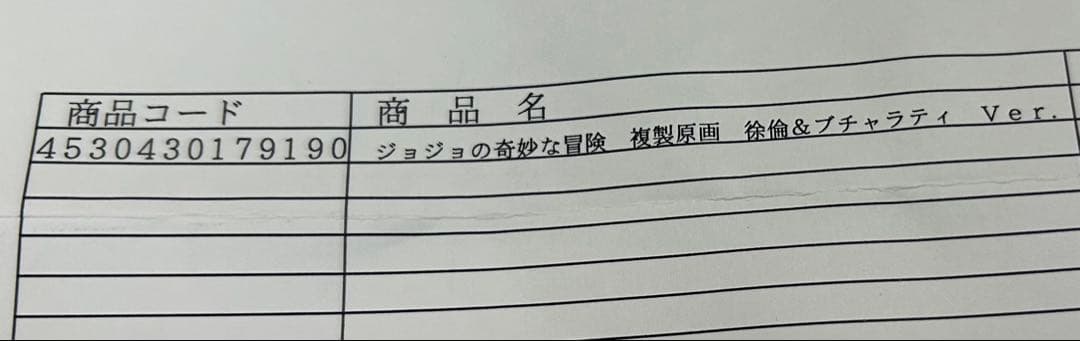 商品コード 商　品　名
4530430179190 ジョジョの奇妙な冒険　複製原画　徐倫&ブチャラティ　Ver.